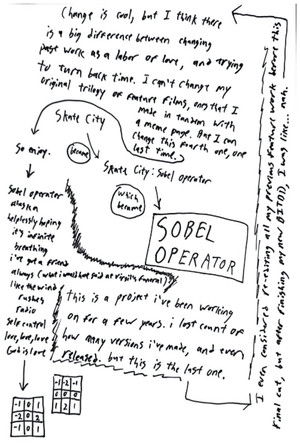 Change is cool, but I think there
is a big difference between changing
past work as a labor of love, and trying
to turn back time. I can't change my
original trilogy of feature films, ones that I
made in tandem with
a meme page. But I can
change this fourth one, one
last time.
Skate City
became
Skate City: Sobel operator
which
became
SOBEL
OPERATOR
So enjoy.
Sobel operator
alaskan
helplessly hoping
it's infinite
breathing
i've got a friend
always (what i would have said at virgil's funeral)
like the wind
rushes
radio
self control
love, love, love
God is love
this is a project i've been working
on for a few years. i lost count of
how many versions i've made, and even
released. but this is the last one.
-1 0 1
-2 0 2
-1 0 1
-1 -2 -1
0 0 0
1 2 1
I even considered re-editing all my previous feature work before this
final cut, but after finishing my new DJTOJJ, I was like... nah.